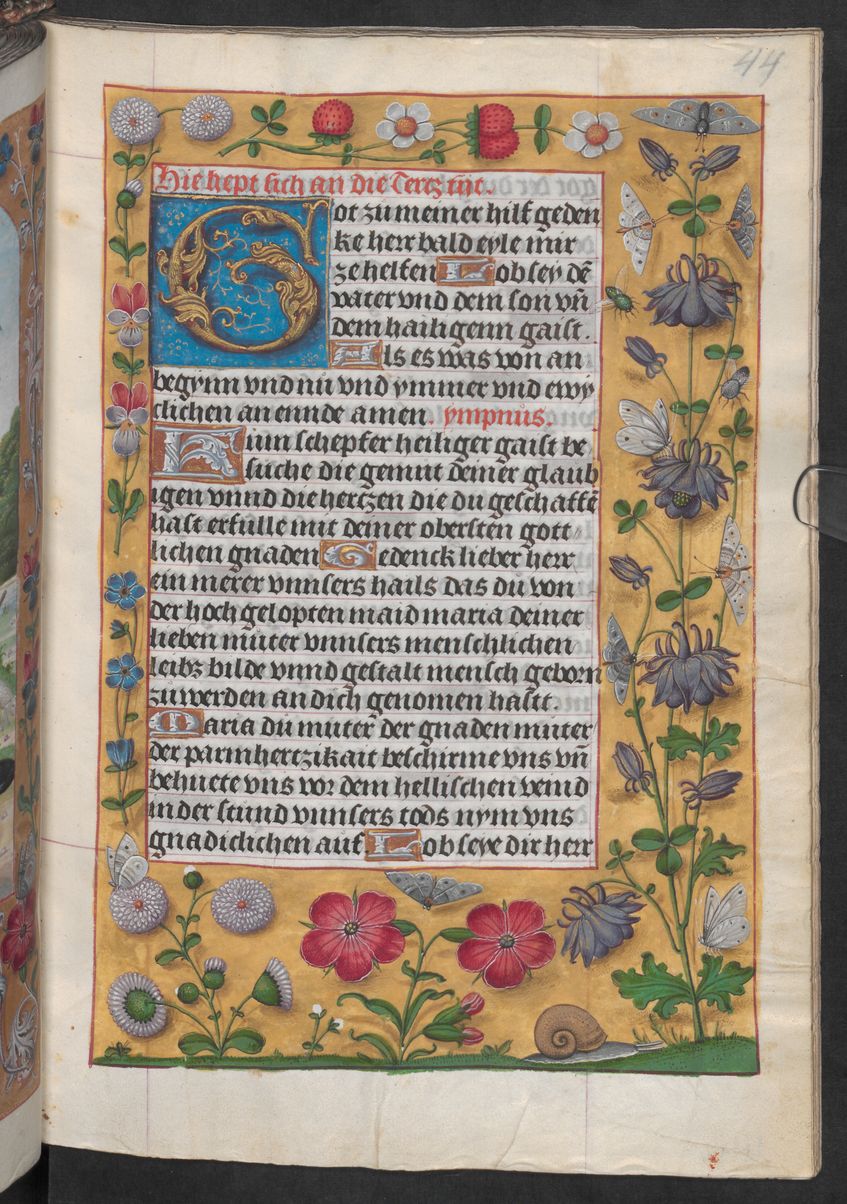 44
Hie hept sich an die Tercz tzit.
Got zu meiner hilf geden
ke herr bald eyle mir
ze helfen Lob sey dē
vater vnd dem son vñ
dem hailigenn gaist.
Als es was von an
begynn vnd nū vnd ymmer vnd ewy
clichen an ennde amen. ympnus.
Nun schepfer heiliger gaist be
suche die gemut deiner glaub
igen vnnd die hertzen die du geschaffē
hast erfulle mit deiner obersten gott
lichen gnaden Gedenck lieber herr
ein merer vnnsers hails das du von
der hoch gelopten maid maria deiner
lieben muter vnnsers menschlichen
leibz bilde vnnd gestalt mensch geborn
zu werden an dich genomen hastt.
Maria du muter der gnaden muter
der parmhertzikait beschirme vns vñ
behuete vns vor dem hellischen veind
in der stund vnnsers tods nym vns
gnadiclichen auf. Lob seye dir herr